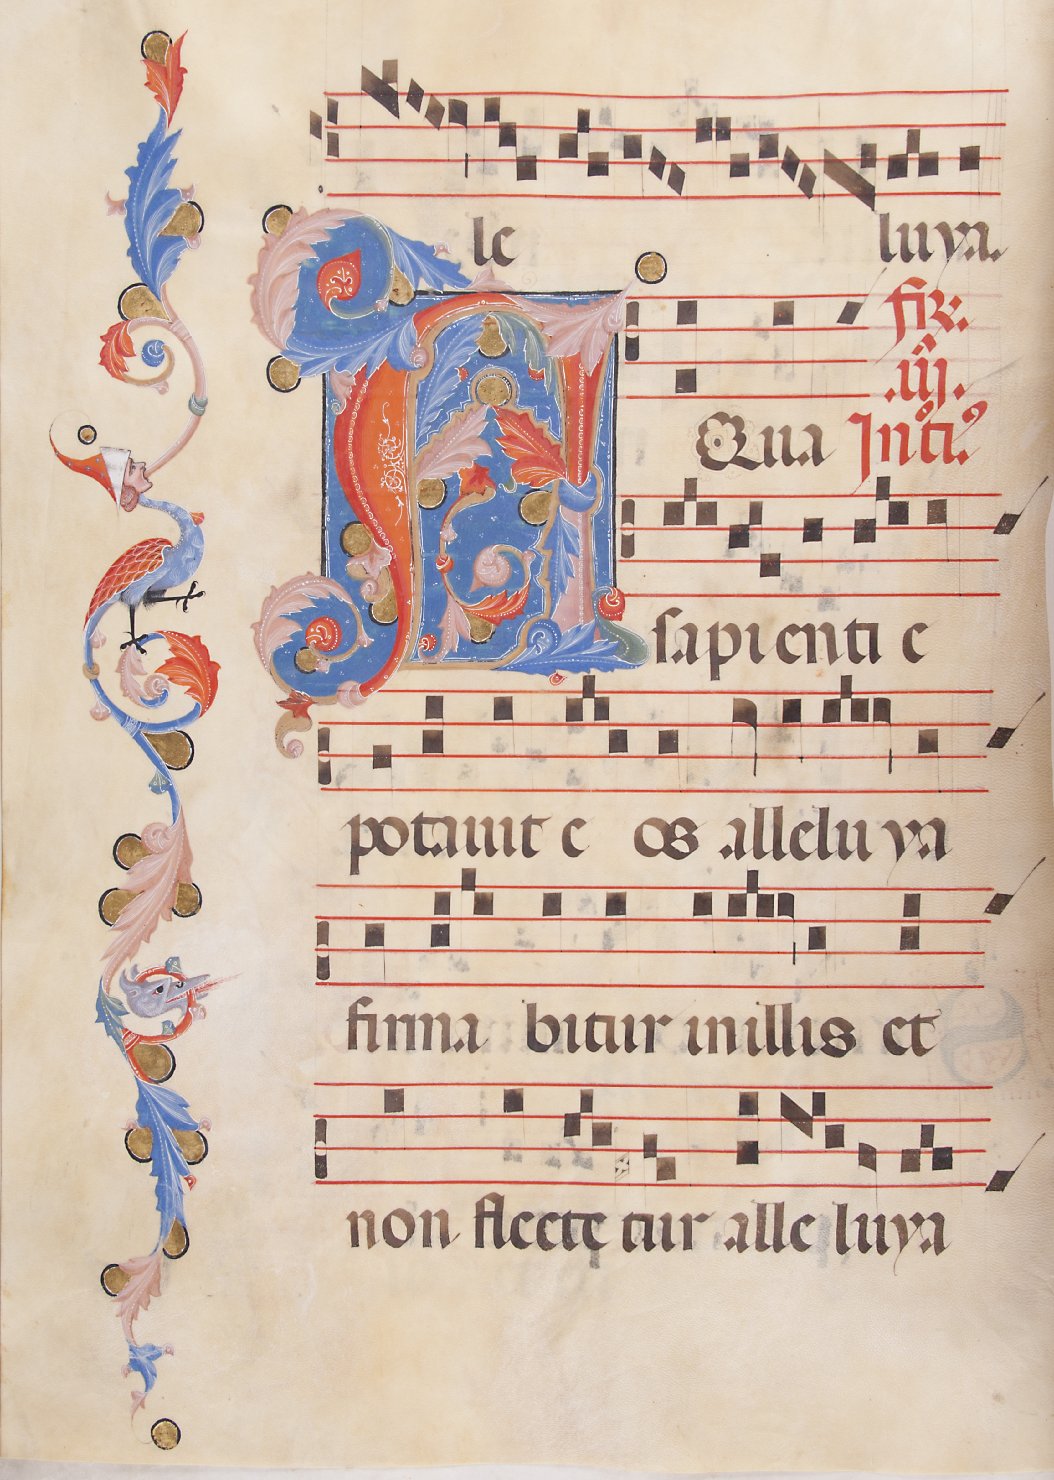 le luya.
fir.
.iij.
AQua Introitus
sapienti e
potauit e os alleluya
firma bitur in illis et
non flecte tur alle luya